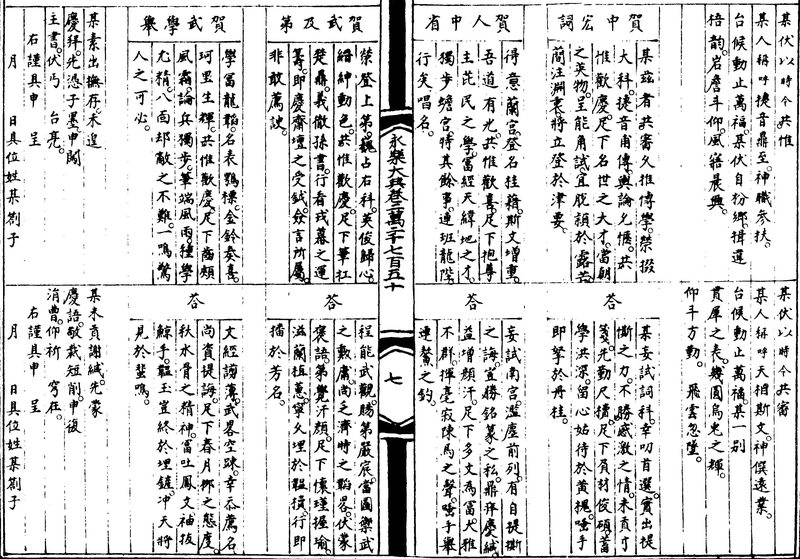 某伏以時令共惟
某人稱呼捷音鼎至。神職參扶。
台候動止萬福。某伏自枌鄉揖違
梧韻。岩詹斗仰。風寤晨興。
賀中宏詞
某茲者共審久推博學。榮掇
大科。捷音甫傳。輿論允愜。共
惟歡慶。足下名世之大才。當朝
之英物。呈能角試。宜脫穎於露芒。
簡注淵衷。將立登於津要。
賀人中省
得意蘭宮。登名桂籍。斯文增重。
吾道有光。共惟歡喜。足下抱尊
主芘民之學。富經天緯地之才。
獨步蟾宮。特其餘事。連班龍陛。
行矣唱名。
某伏以時令共審
某人稱呼天相斯文。神僎遠業。
台候動止萬福。某一別
貫犀之表。幾圓烏兔之輝。
仰斗方勤。飛雲忽墮。
答
某妄試詞科。幸叨首選。實出提
撕之力。不勝感激之情。未貢寸
箋。先勤尺牘。足下負材俊碩。蓄
學洪深。留心姑待於黃槐。唾手
即拏於丹桂。
答
妄試南宮。濫虛前列。有自提撕
之誨。宜勝銘篆之私。鼎辱慶緘。
益增顏汗。足下多文為富。大雅
不群。揮毫寂陳馬之聲。唾手舉
連鰲之釣。
永樂大典卷二萬二千七百五十
七
賀武及第
榮登上第。巍占右科。英俊歸心。
縉紳動色。共惟歡慶。足下筆扛
楚鼎。義徹孫書。行看戎幕之運
籌。即慶齋壇之受鉞。僉言所屬。
非敢厲諛。
賀武學舉
學富龍韜。名表鶚標。金鈴奏喜。
珂里生輝。共惟歡慶。足下齒頰
風霜。論兵獨步。筆端風雨。種學
尤精。八面却敵之不難。一鳴驚
人之可必。
某素出撫存。未遑
慶拜。先憑子墨。申聞
主書。伏丐台亮。
右謹具申呈
月日具位姓某劄子
答
程能武觀。勝第嚴宸。當圖樂武
之勳。庸尚乏濟時之韜略。伏蒙
褒語。第覺汗顏。足下懷瑾握瑜。
滋蘭植蕙。寧久埋於韞櫝。行即
擂於芳名。
答
文經謭薄。武略空踈。幸忝薦名。
尚資提誨。足下春月柳之態度。
秋水骨之精神。富吐鳳文。袖拔
鯨手。韞玉豈終於埋鏟。沖天將
見於蜚鳴。
某未貢謝緘。先蒙
慶語。敬裁短削。申復
涓曹。仰祈穹在。
右謹具申呈
月日具位姓某劄子